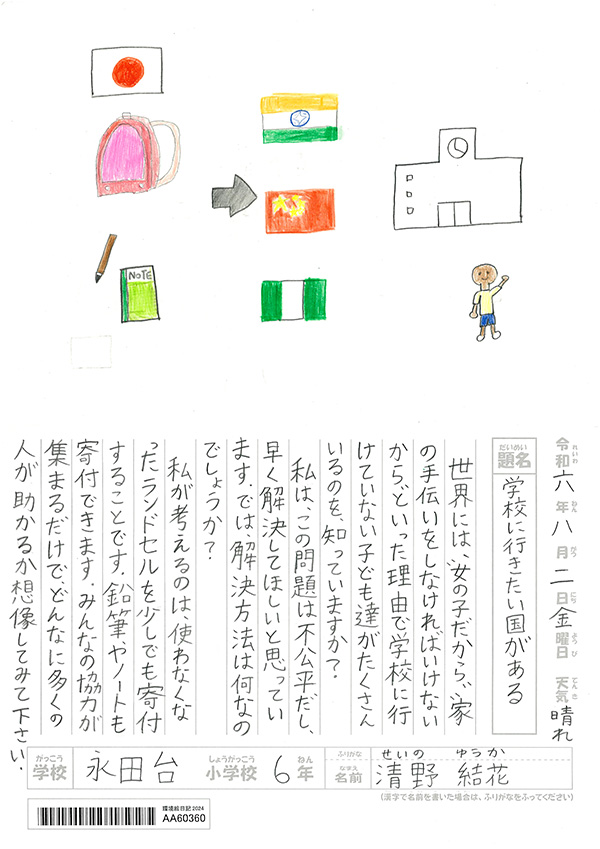 NOTE
令和六年八月二日金曜日 天気晴れ
れいわ ねん がつ にち ようび てんき
だいめい
題名
学校に行きたい国がある
世界には、“女の子だから”、“家
の手伝いをしなければいけない
から”、といった理由で学校に行
けていない子ども達がたくさん
いるのを、知っていますか？
私は、この問題は不公平だし、
早く解決してほしいと思ってい
ます。では、解決方法は何なの
でしょうか？
私が考えるのは、使わなくな
ったランドセルを少しでも寄付
することです。鉛筆やノートも
寄付できます。みんなの協力が
集まるだけで、どんなに多くの
人が助かるか想像してみて下さい。
がっこう
学校
永田台
しょうがっこう
小学校
6
ねん
年
ふりがな
せいの ゆうか
なまえ
名前
清野 結花
(漢字で名前を書いた場合は、ふりがなをふってください)
環境絵日記2024
AA60360